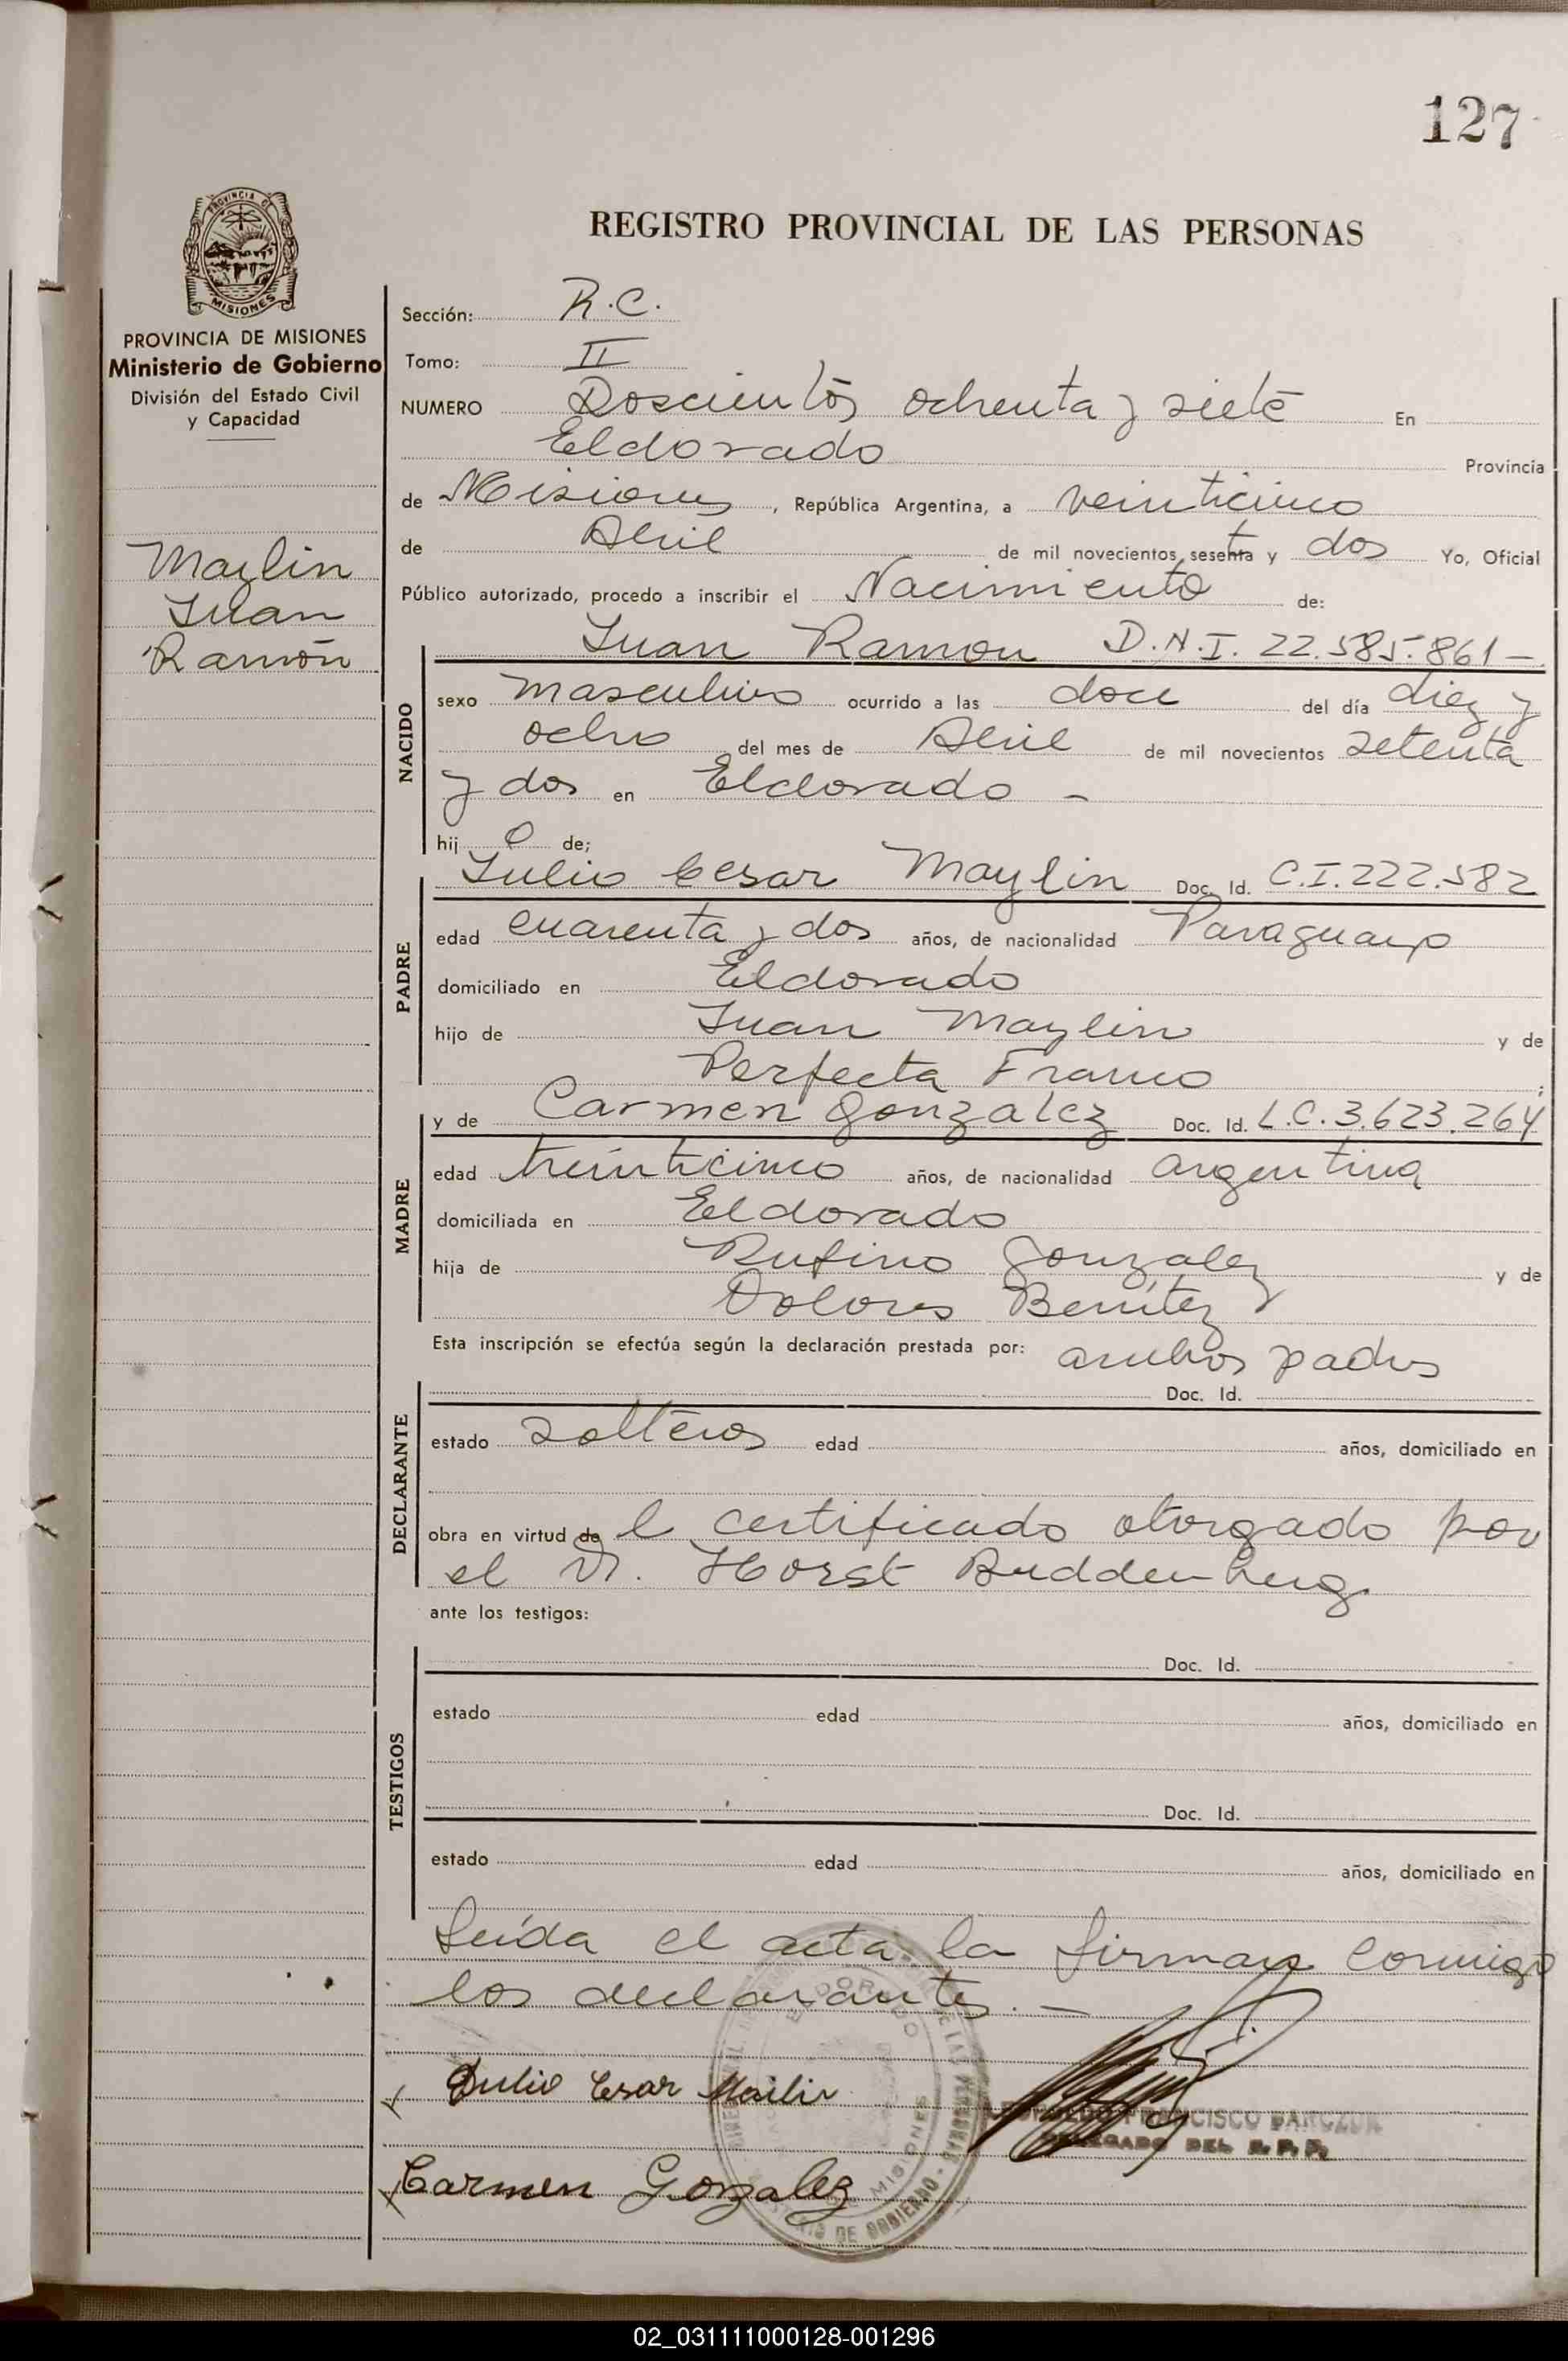 127
REGISTRO PROVINCIAL DE LAS PERSONAS
PROVINCIA DE
MISIONES
PROVINCIA DE MISIONES
Ministerio de Gobierno
División del Estado Civil
y Capacidad
Maylin
Juan
Ramón
Sección: R.C.
Tomo: II
NUMERO Doscientos ochenta y siete En
Eldorado Provincia
de Misiones, República Argentina, a veinticinco
de Abril de mil novecientos setenta y dos Yo, Oficial
Público autorizado, procedo a inscribir el Nacimiento de:
Juan Ramon D.N.I. 22.585.861 -
NACIDO
sexo masculino ocurrido a las doce del día diez y
ocho del mes de Abril de mil novecientos setenta
y dos en Eldorado -
hij o de;
Julio Cesar Maylin Doc. Id. C.I. 222.582
PADRE
edad cuarenta y dos años, de nacionalidad Paraguayo
domiciliado en Eldorado
hijo de Juan Maylin y de
Perfecta Franco ;
y de Carmen Gonzalez Doc. Id. L.C. 3.623.264
MADRE
edad treinticinco años, de nacionalidad argentina
domiciliada en Eldorado
hija de Rufino Gonzalez y de
Dolores Benítez
Esta inscripción se efectúa según la declaración prestada por: ambos padres
Doc. Id.
DECLARANTE
estado solteros edad años, domiciliado en
obra en virtud de l certificado otorgado por
el Dr. Horst Buddenberg.
ante los testigos:
Doc. Id.
TESTIGOS
estado edad años, domiciliado en
Doc. Id.
estado edad años, domiciliado en
Leída el acta la firman conmigo
los declarantes. -
Julio Cesar Mailin
FRANCISCO
DELEGADO DEL R. P. P.
Carmen Gonzalez
ELDORADO
MISIONES
MINISTERIO DE GOBIERNO
02_031111000128-001296